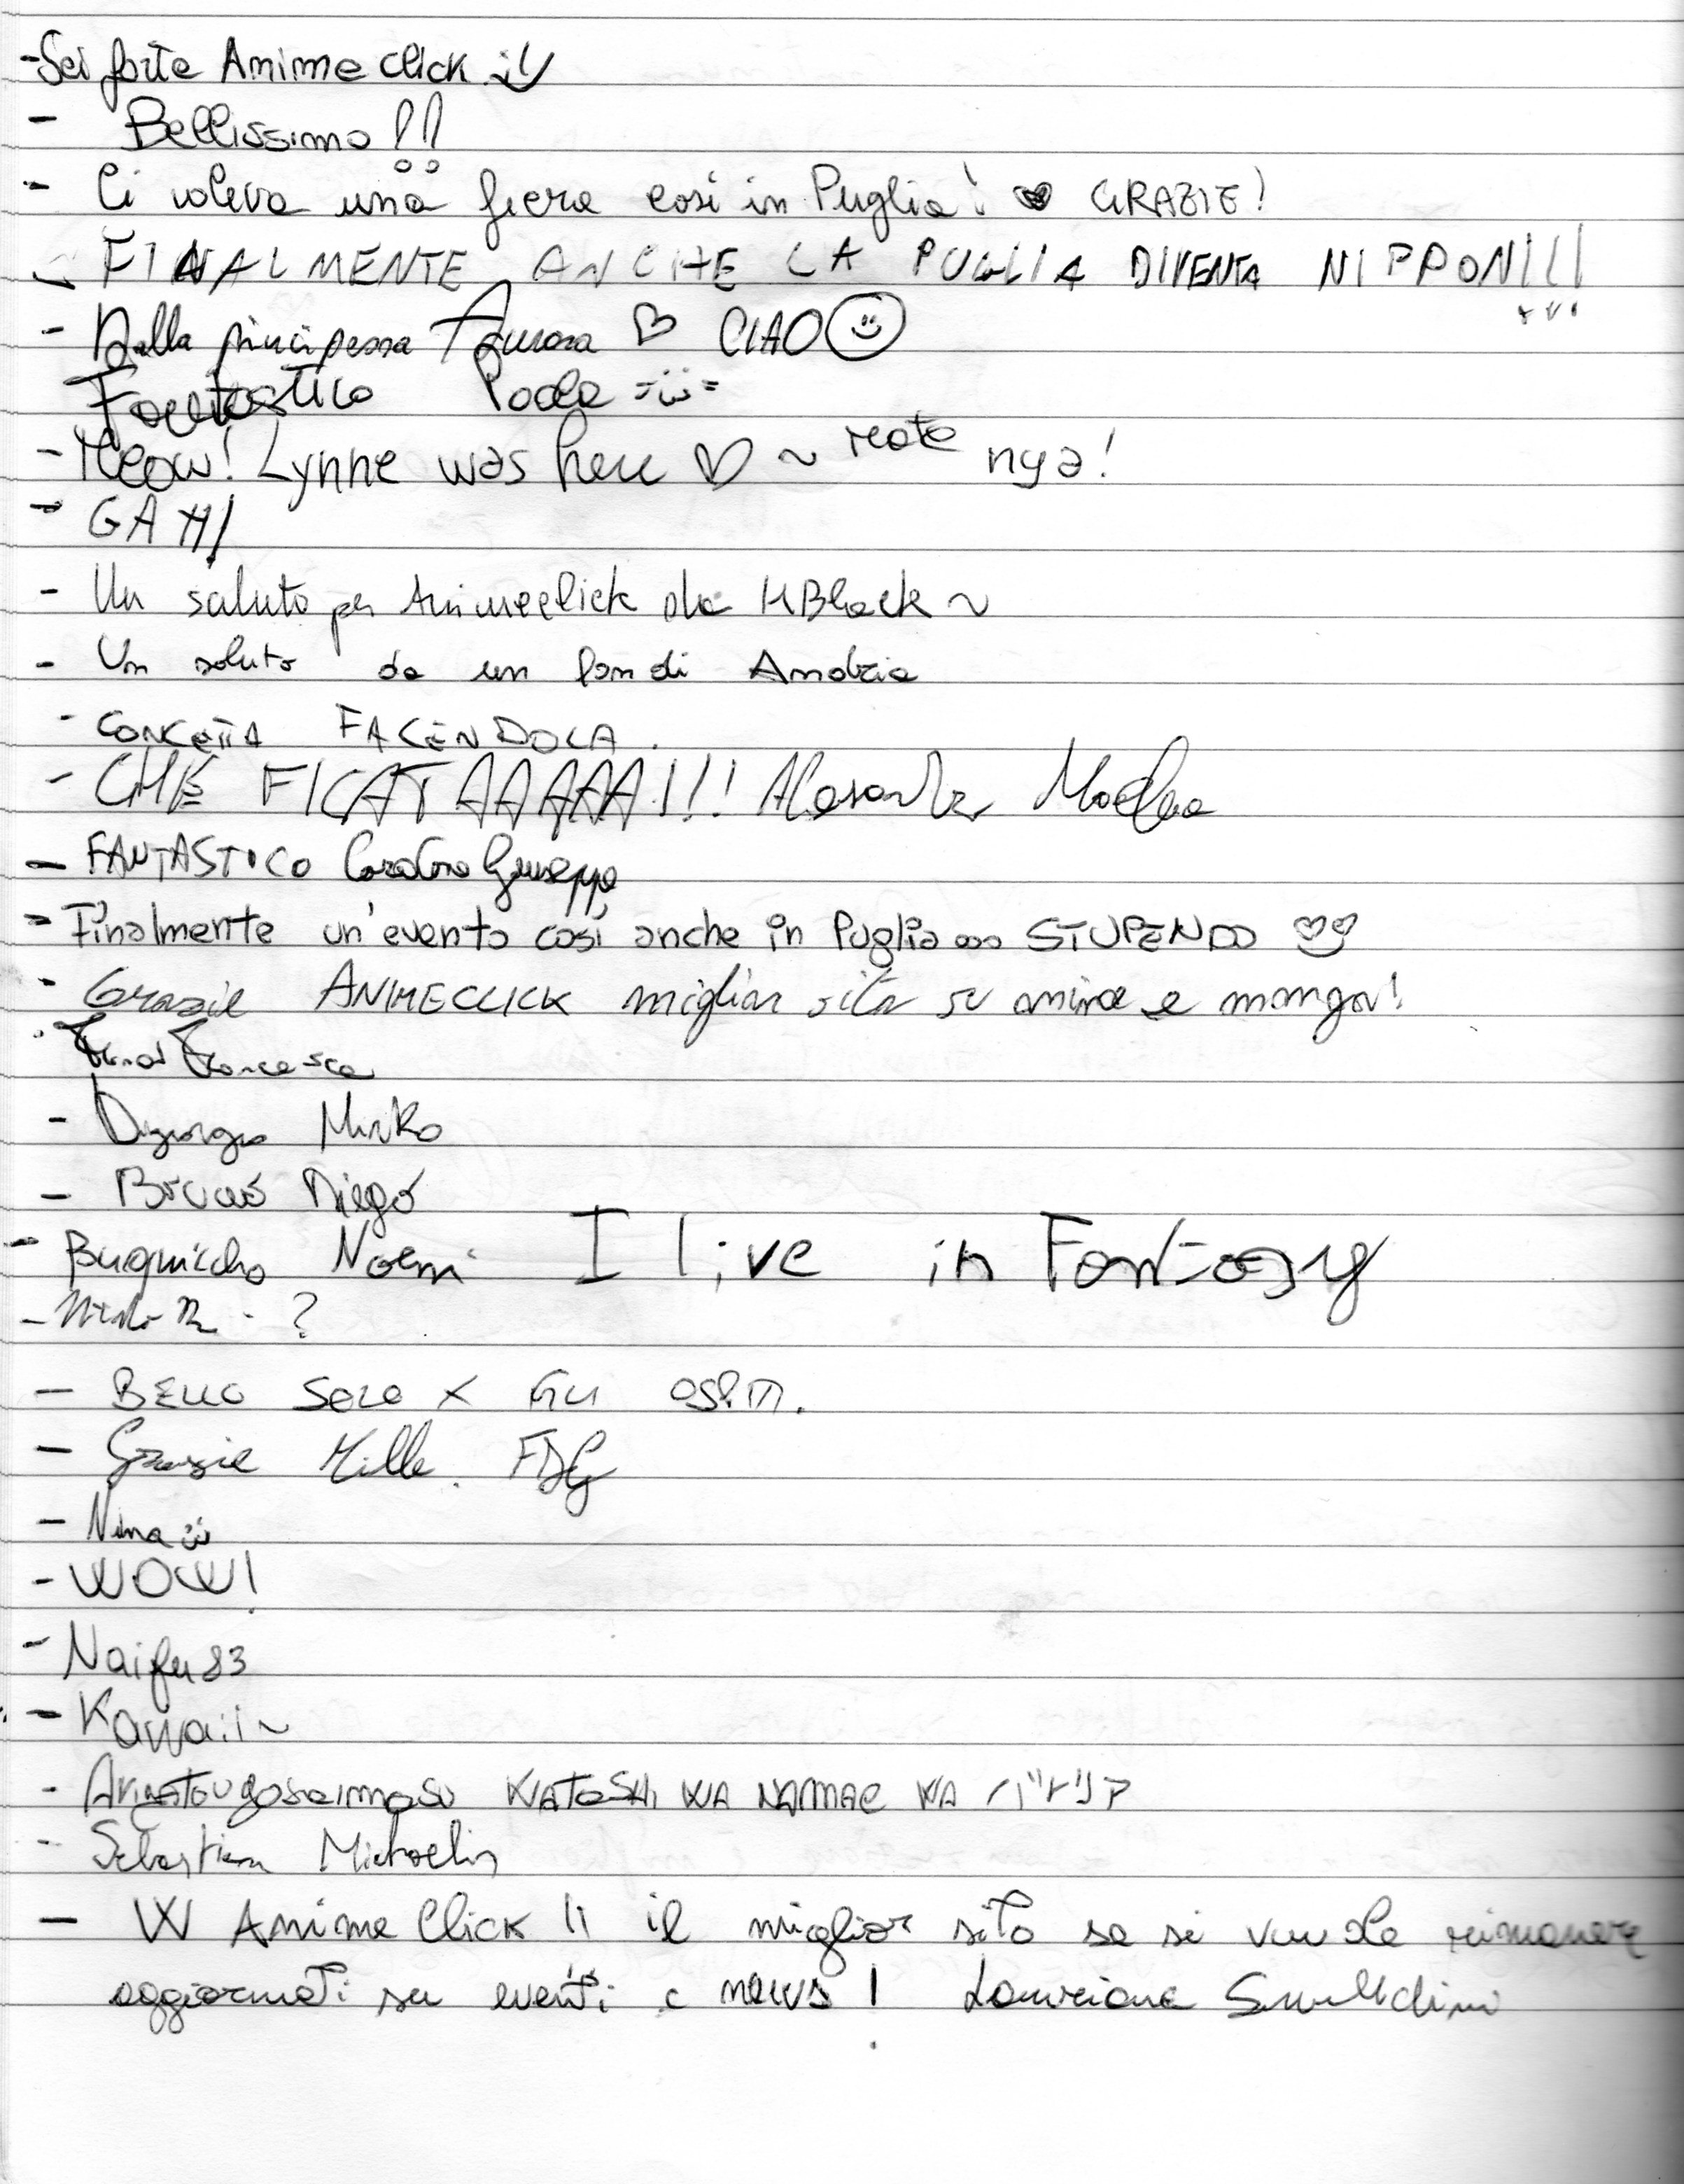 - Sei forte Animeclick :)
- Bellissimo!!
- Ci voleva una fiera così in Puglia! ♥ GRAZIE!
- FINALMENTE ANCHE LA PUGLIA DIVENTA NIPPON!!!
- Dalla principessa Aurora ♡ CIAO ☺
Fantastico Paola =ü=
- Meow! Lynne was here ♡ ~ Mate nya!
- GAH!
- Un saluto per Animeclick da KBlack ~
- Un saluto da un fan di Andria
- CONCETTA FACENDOLA.
- CHE FICATAAAAAA!!! Alessandra
- FANTASTICO Giuseppe
- Finalmente un'evento così anche in Puglia ooo STUPENDO
- Grazie ANIMECLICK miglior sito su anime e manga!
Francesca
- Digiorgio Mirko
- Bruno Diego
- Buquicchio Noemi I live in Fantasy
- ?
- BELLO SOLO X GLI OSPITI.
- Grazie Mille. FDG
- Nina ü
- WOW!
- Naifu83
- Kawaii~
- Arigatougosaimasu WATASHI WA NAMAE WA パトリア
- Sebastian Michaelis
- W AnimeClick!! il miglior sito se si vuole rimanere
aggiornati su eventi e news!